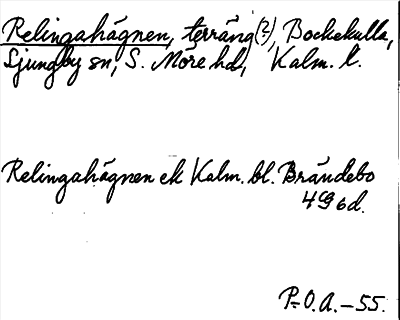 Relingahägnen, terräng (?), Bockekulla,
Ljungby sn, S. Möre hd, Kalm. l.
Relingahägnen ek Kalm. bl. Brändebo
4G 6d.
P.O.A. - 55.